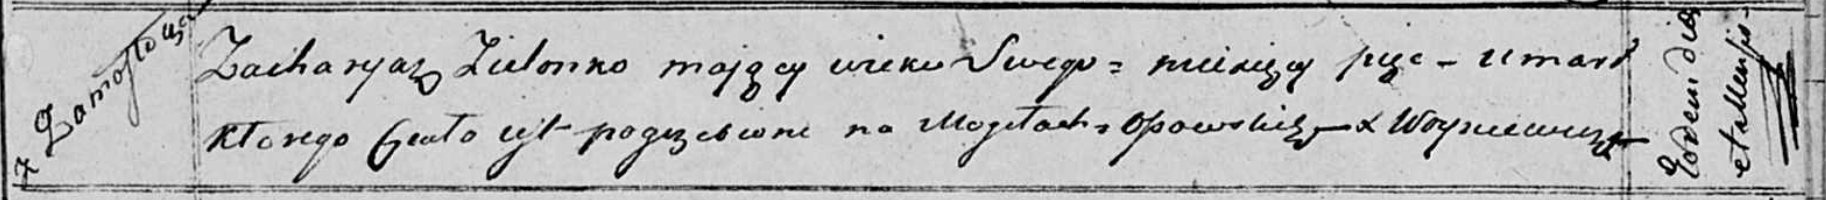 7 Zamosto
Zacharyasz Zielonko mający wieku Swego = miesięcy pięc – umarł
ktorego Ciało iest pogrzebione na Mogiłach
Eodem die
et Mensis